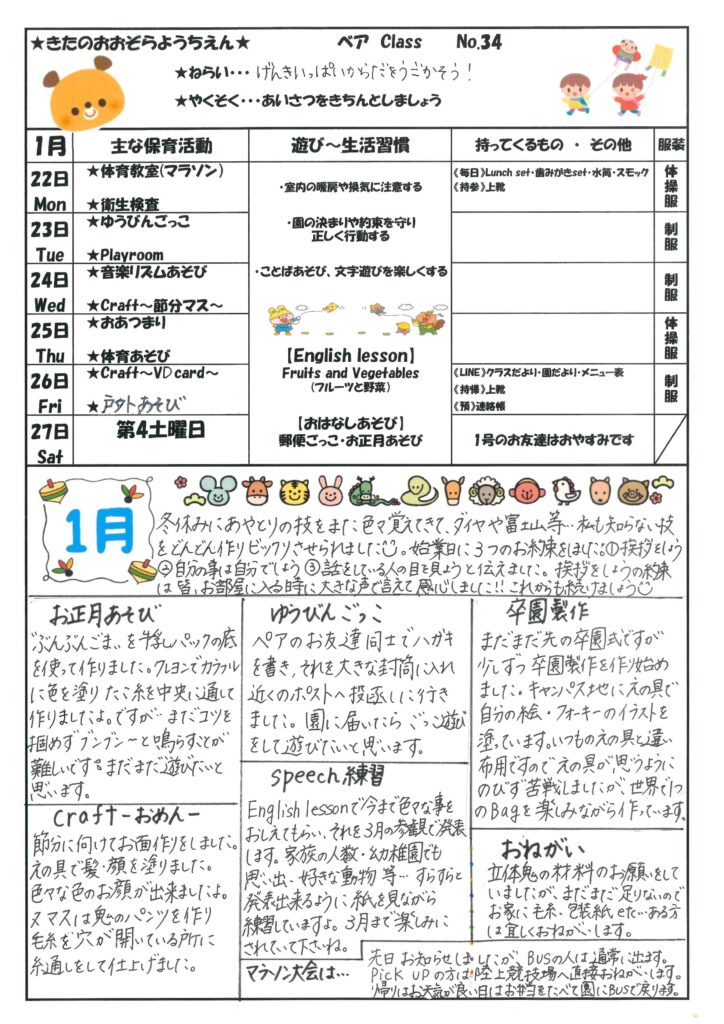 ★きたのおおぞらようちえん★ ベア Class No.34
★ねらい・・・げんきいっぱいからだをうごかそう！
★やくそく・・・あいさつをきちんとしましょう
1月 主な保育活動 遊び～生活習慣 持ってくるもの ・ その他 服装
22日 Mon
★体育教室(マラソン)
★衛生検査
・室内の暖房や換気に注意する
《毎日》Lunch set・歯みがきset・水筒・スモック
《持参》上靴
体操服
23日 Tue
★ゆうびんごっこ
★Playroom
・園の決まりや約束を守り
正しく行動する
制服
24日 Wed
★音楽リズムあそび
★Craft～節分マス～
・ことばあそび、文字遊びを楽しくする
制服
25日 Thu
★おあつまり
★体育あそび
体操服
【English lesson】
Fruits and Vegetables
(フルーツと野菜)
26日 Fri
★Craft～VD card～
★戸外あそび
《LINE》クラスだより・園だより・メニュー表
《持帰》上靴
《預》連絡帳
制服
【おはなしあそび】
郵便ごっこ・お正月あそび
27日 Sat
第4土曜日
1号のお友達はおやすみです
1月
冬休みにあやとりの技をまた色々覚えてきて、ダイヤや富士山等…私も知らない技
をどんどん作りビックリさせられました。始業日に3つのお約束をしました。①挨拶をしよう
②自分の事は自分でしよう③話をしている人の目を見ようと伝えました。挨拶をしようの約束
は皆、お部屋に入る時に大きな声で言えて感心しました!!これからも続けましょう
お正月あそび
"ぶんぶんごま"を牛乳パックの底
を使って作りました。クレヨンでカラフル
に色を塗りたこ糸を中央に通して
作りましたよ。ですが…まだコツを
掴めずブンブン～と鳴らすことが
難しいです。まだまだ遊びたいと
思います。
Craft-おめん-
節分に向けてお面作りをしました。
えの具で髪・顔を塗りました。
色々な色のお顔が出来ましたよ。
又マスは鬼のパンツを作り
毛糸を穴が開いている所に
糸通しをして仕上げました。
ゆうびんごっこ
ペアのお友達同士でハガキ
を書き、それを大きな封筒に入れ
近くのポストへ投函しに行き
ました。園に届いたらごっこ遊び
をして遊びたいと思います。
speech練習
English lessonで今まで色々な事を
おしえてもらい、それを3月の参観で発表
します。家族の人数・幼稚園でも
思い出、好きな動物等…すらすらと
発表出来るように紙を見ながら
練習していますよ。3月まで楽しみに
されていて下さいね。
卒園製作
まだまだ先の卒園式ですが
少しずつ卒園製作を作り始め
ました。キャンパス地にえの具で
自分の絵・フォーキーのイラストを
塗っています。いつものえの具と違い
布用ですのでえの具が思うように
のびず苦戦しましたが、世界で1つ
のBagを楽しみながら作っています。
おねがい
立体鬼の材料のお願いをして
いましたが、まだまだ足りないので
お家に毛糸、包装紙etc…ある方
は宜しくおねがいします。
マラソン大会は…
先日お知らせしましたが、BUSの人は通常に出ます。
Pick UPの方は陸上競技場へ直接おねがいします。
帰りはお天気が良い日はお弁当をたべて園にBUSで戻ります。